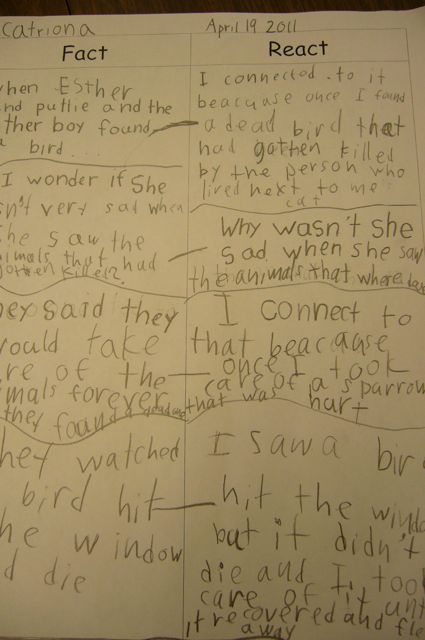 Catriona
April 19 2011
Fact
React
when Esther
nd puttie and the
ther boy found
a bird....
I connected to it
beacause once I found
a dead bird that
had gotten killed
by the person who
lived next to me
cat
I wonder if She
sn't very sad when
he saw the
nimals that had
gotten killed?
Why wasn't She
sad when she saw
the animals that where
hey said they
would take
re of the
imals forever
they found a dead one
I connect to
that beacause
once I took
care of a sparrow
that was hurt
hey watched
bird hit
he window
d die
I saw a bir
hit the windo
but it didn't
die and I took
care of it unt
it recovered and fle
away